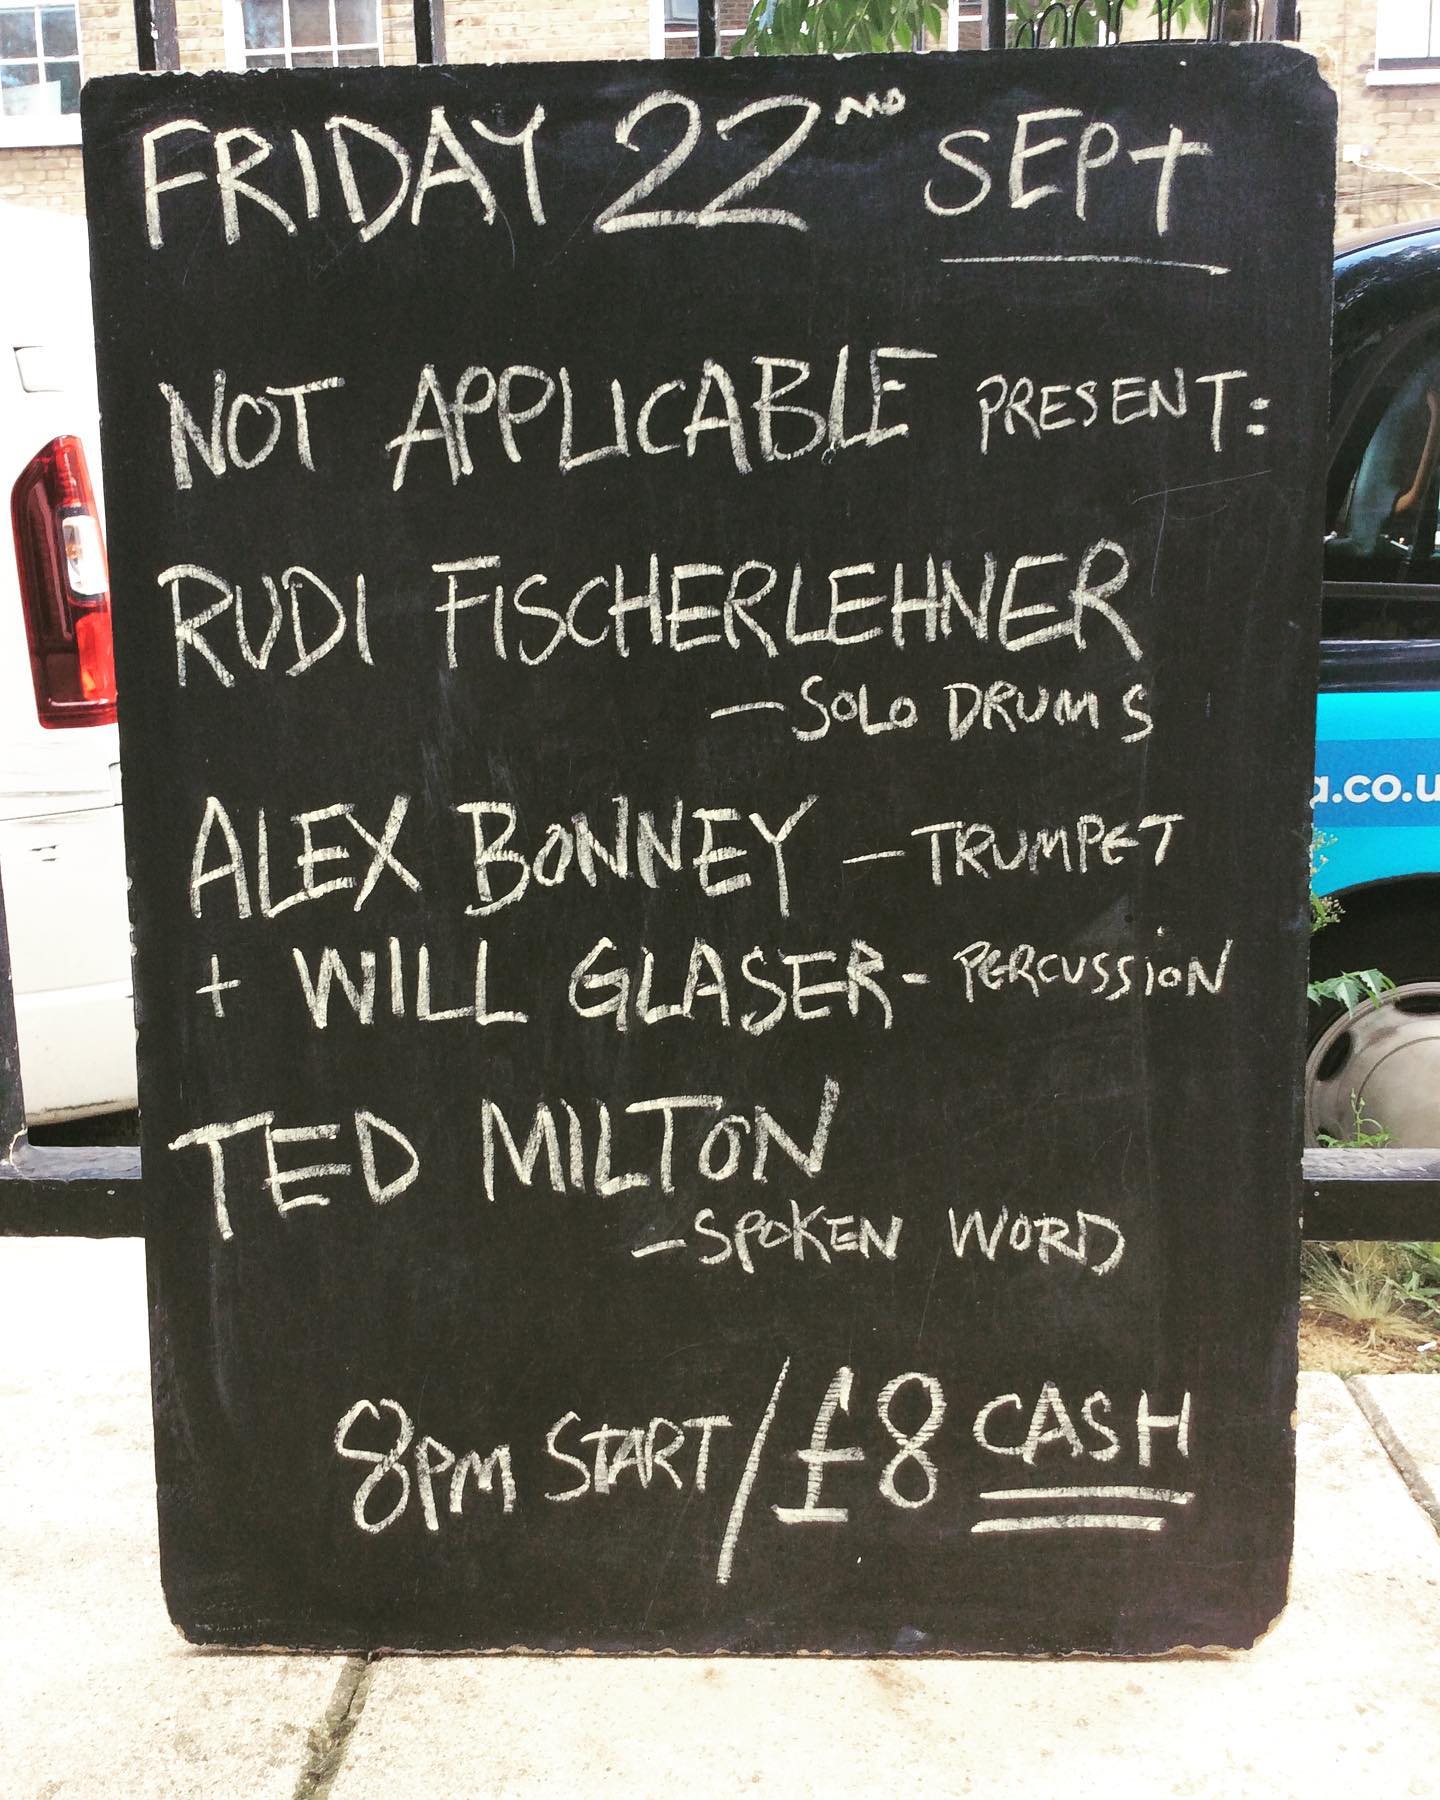 FRIDAY 22ND SEPT
NOT APPLICABLE PRESENT:
RUDI FISCHERLEHNER
- SOLO DRUMS
ALEX BONNEY - TRUMPET
+ WILL GLASER - PERCUSSION
TED MILTON
- SPOKEN WORD
8PM START / £8 CASH
a.co.u